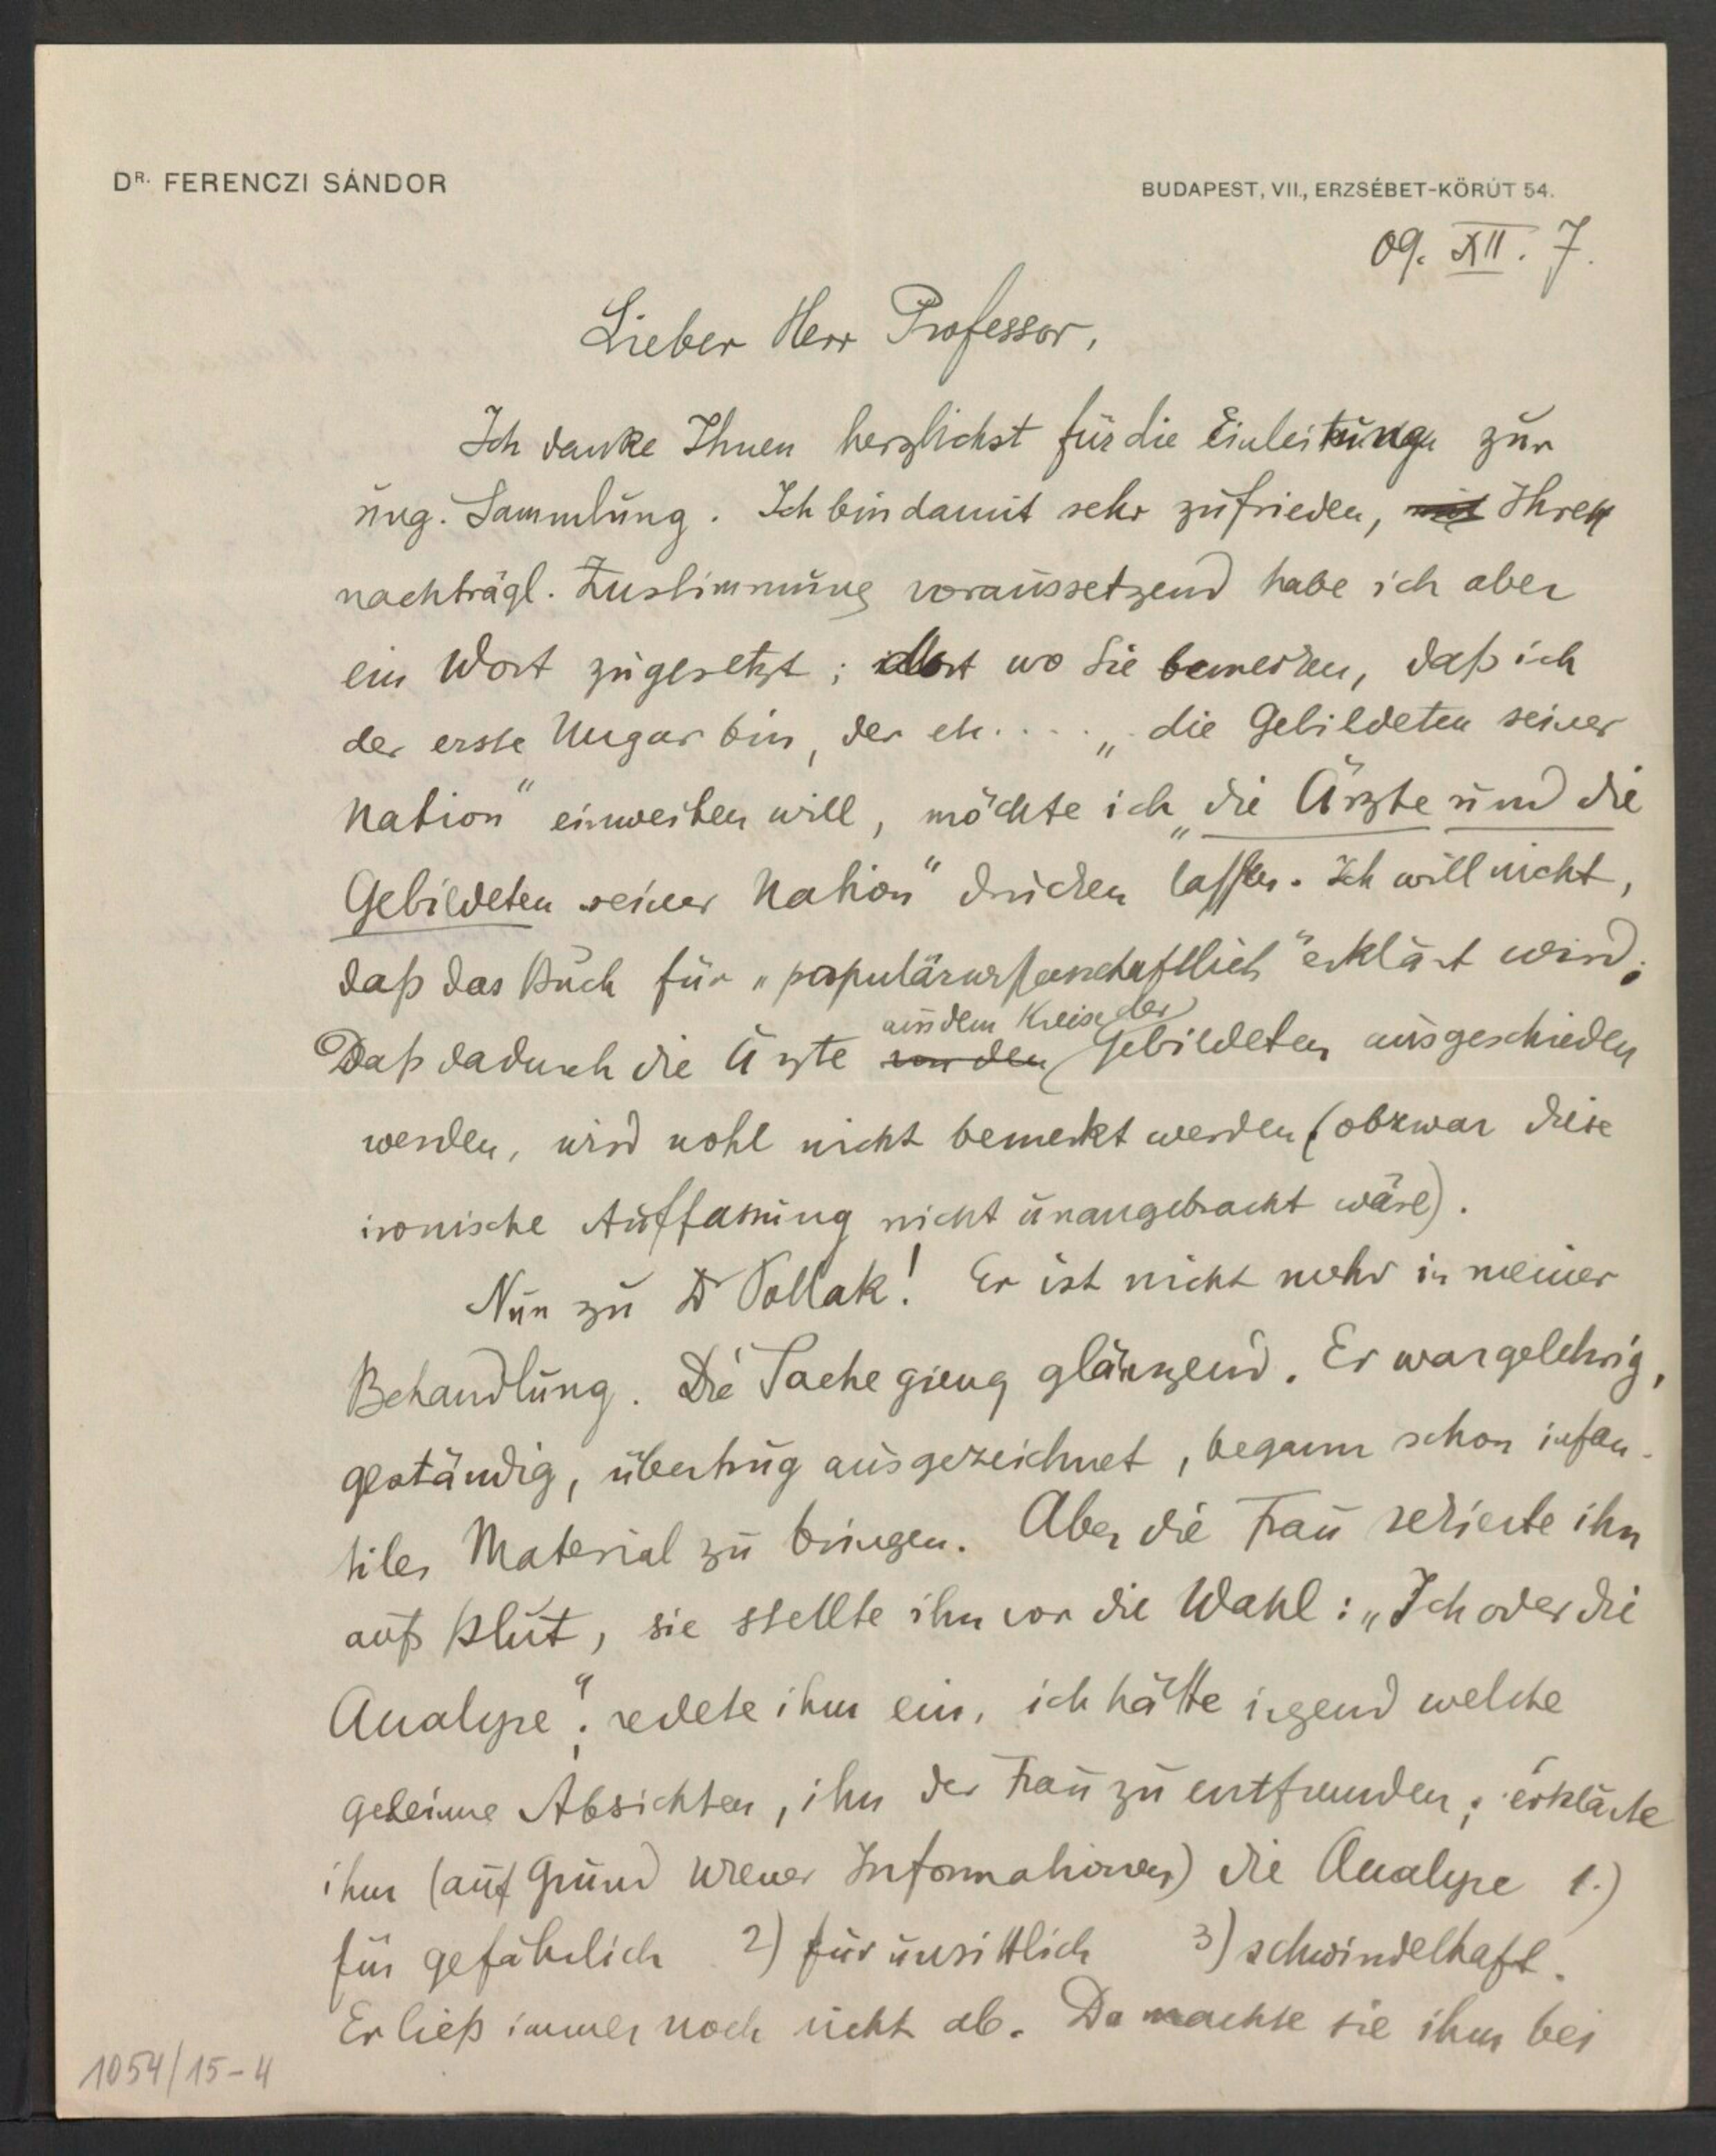 DR. FERENCZI SÁNDOR
BUDAPEST, VII., ERZSÉBET-KÖRÚT 54.
09. XII. 7.
Lieber Herr Professor,
Ich danke Ihnen herzlichst für die Einleitung zur
ung. Sammlung. Ich bin damit sehr zufrieden, mit Ihre
nachträgl. Zustimmung voraussetzend habe ich aber
ein Wort zugesetzt; dort wo Sie bemerken, daß ich
der erste Ungar bin, der etc. . . . „die Gebildeten seiner
Nation“ einweihen will, möchte ich „die Ärzte und die
Gebildeten seiner Nation“ drucken lassen. Ich will nicht,
daß das Buch für „populärwissenschaftlich“ erklärt wird;
aus dem Kreise der
Daß dadurch die Ärzte von den Gebildeten ausgeschieden
werden, wird wohl nicht bemerkt werden (obzwar diese
ironische Auffassung nicht unangebracht wäre).
Nun zu Dr Pollak! Er ist nicht mehr in meiner
Behandlung. Die Sache gieng glänzend. Er war gelehrig,
geständig, übertrug ausgezeichnet, begann schon infan-
tiles Material zu bringen. Aber die Frau sekierte ihn
aufs Blut, sie stellte ihn vor die Wahl: „Ich oder die
Analyse“; redete ihm ein, ich hätte irgend welche
geheime Absichten, ihn der Frau zu entfremden; erklärte
ihm (auf Grund Wiener Informationen) die Analyse 1.)
für gefährlich 2) für unsittlich 3) schwindelhaft.
Er ließ immer noch nicht ab. Da machte sie ihm bei
1054/15-4